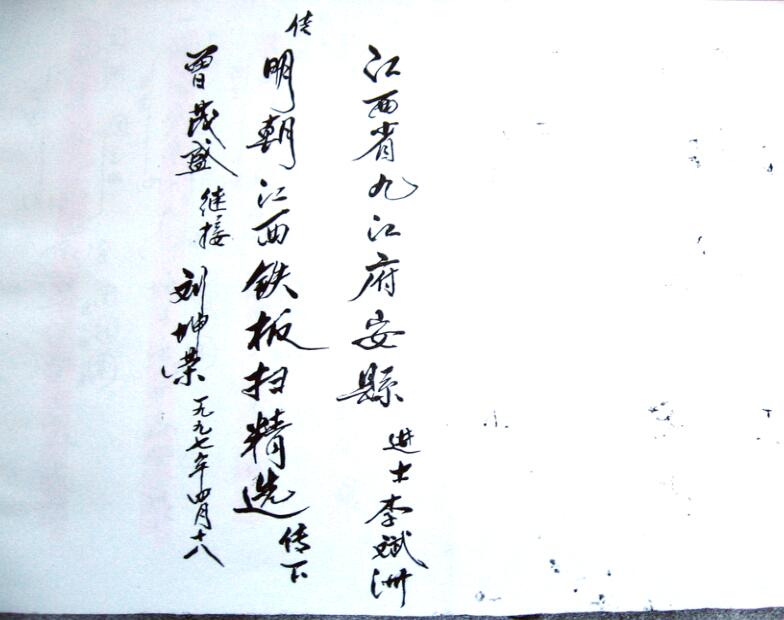 江西省九江府安縣进士李斌洲
传明朝江西铁板扫精选传下
曾茂盛继接刘坤荣一九九七年四月十八